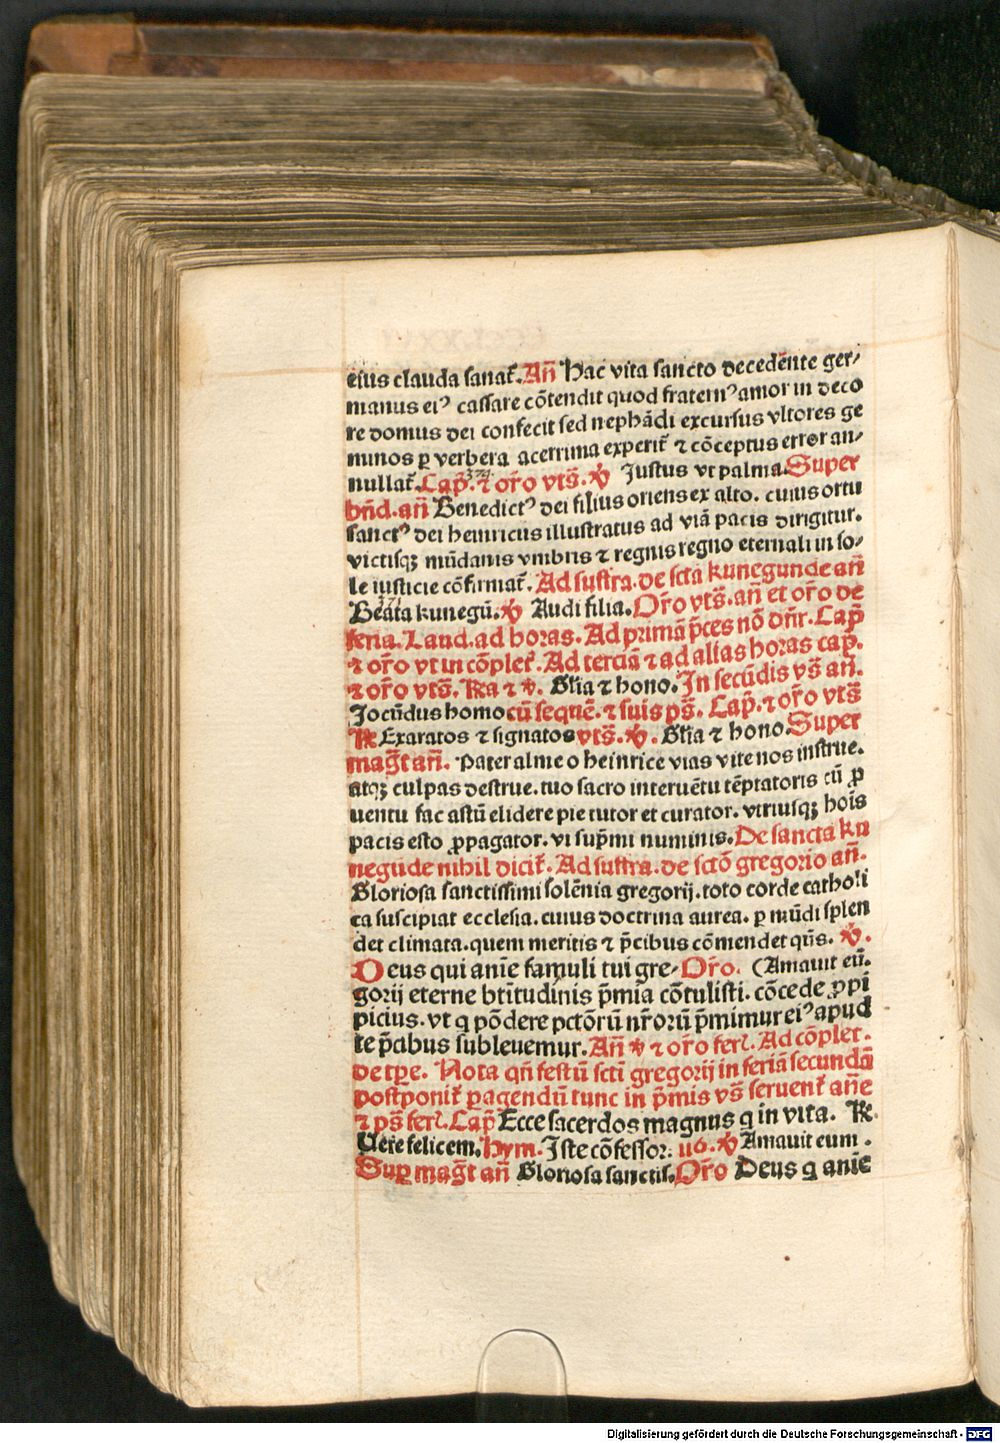 eius clauda sanat᷑. Añ Hac vita sancto decedēnte ger-
manus eiꝰ cassare cōtendit quod fraternꝰ amor in deco
re domus dei confecit sed nephādi excursus vltores ge
minos ꝑ verbera acerrima experit᷑ ⁊ cōceptus error an-
nullat᷑. Cap̄. ⁊ or̄o vts̄. ℣ Justus vt palma. Super
bn̄d. añ Benedictꝰ dei filius oriens ex alto. cuius ortu
sanctꝰ dei heinricus illustratus ad viā pacis dirigitur.
victisqꝫ mūdanis vmbris ⁊ regnis regno eternali in so-
le iusticie cōfirmat᷑. Ad suffra. de scta kunegunde añ
Beata kunegū. ℣ Audi filia. Or̄o vts̄. añ et or̄o de
feria. Laud. ad horas. Ad primā p̄ces nō dn̄r. Cap̄
⁊ or̄o vt in cōplet᷑. Ad terciā ⁊ ad alias horas cap̄.
⁊ or̄o vts̄. ℞a ⁊ ℣. Gl̄ia ⁊ hono. In secūdis vs̄ añ.
Jocūdus homo cū sequē. ⁊ suis ps̄. Cap̄. ⁊ or̄o vts̄
℞ Exaratos ⁊ signatos vts̄. ℣. Gl̄ia ⁊ hono. Super
mag̅t añ. Pater alme o heinrice vias vite nos instrue.
atqꝫ culpas destrue. tuo sacro interuētu tēptatoris cū ꝓ
uentu fac astū elidere pie tutor et curator. vtriusqꝫ hoīs
pacis esto ꝓpagator. vi sup̄mi numinis. De sancta ku
negūde nihil dicit᷑. Ad suffra. de sctō gregorio añ.
Gloriosa sanctissimi solēnia gregorij. toto corde catholi
ca suscipiat ecclesia. cuius doctrina aurea. ꝑ mūdi splen
det climata. quem meritis ⁊ p̄cibus cōmendet qūs. ℣.
Deus qui anīe famuli tui gre- Or̄o. (Amauit eū.
gorij eterne bt̄itudinis p̄mia cōtulisti. cōcede ꝓpi
picius. vt q pōdere pctōrū nr̄orū p̄mimur eiꝰ apud
te p̄cibus subleuemur. Añ ℣ ⁊ or̄o ferl᷑. Ad cōplet.
de tꝑe. Nota qn̄ festū sctī gregorij in feriā secundā
postponit᷑ ꝑagendū tunc in p̄mis vs̄ seruent᷑ añe
⁊ ps̄ ferl᷑. Cap̄ Ecce sacerdos magnus q in vita. ℞.
Uere felicem. Hym. Iste cōfessor. 116. ℣ Amauit eum.
Suꝑ mag̅t añ Gloriosa sanctis. Or̄o Deus q anīe
Digitalisierung gefördert durch die Deutsche Forschungsgemeinschaft - DFG